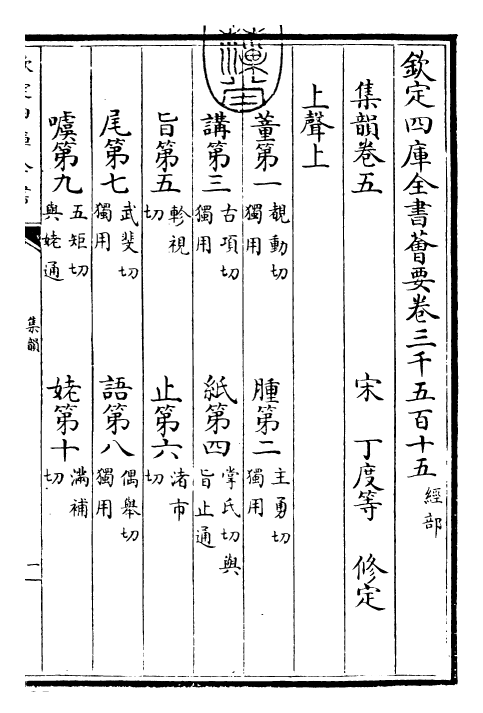 欽定四庫全書薈要卷三千五百十五 經部
集韻卷五 宋 丁度等 修定
上聲上
董第一 覩動切 獨用 腫第二 主勇切 獨用
講第三 古項切 獨用 紙第四 掌氏切與旨止通
旨第五 軫視切 止第六 渚市切
尾第七 武斐切 獨用 語第八 偶舉切 獨用
噳第九 五矩切 與姥通 姥第十 滿補切
集韻
一